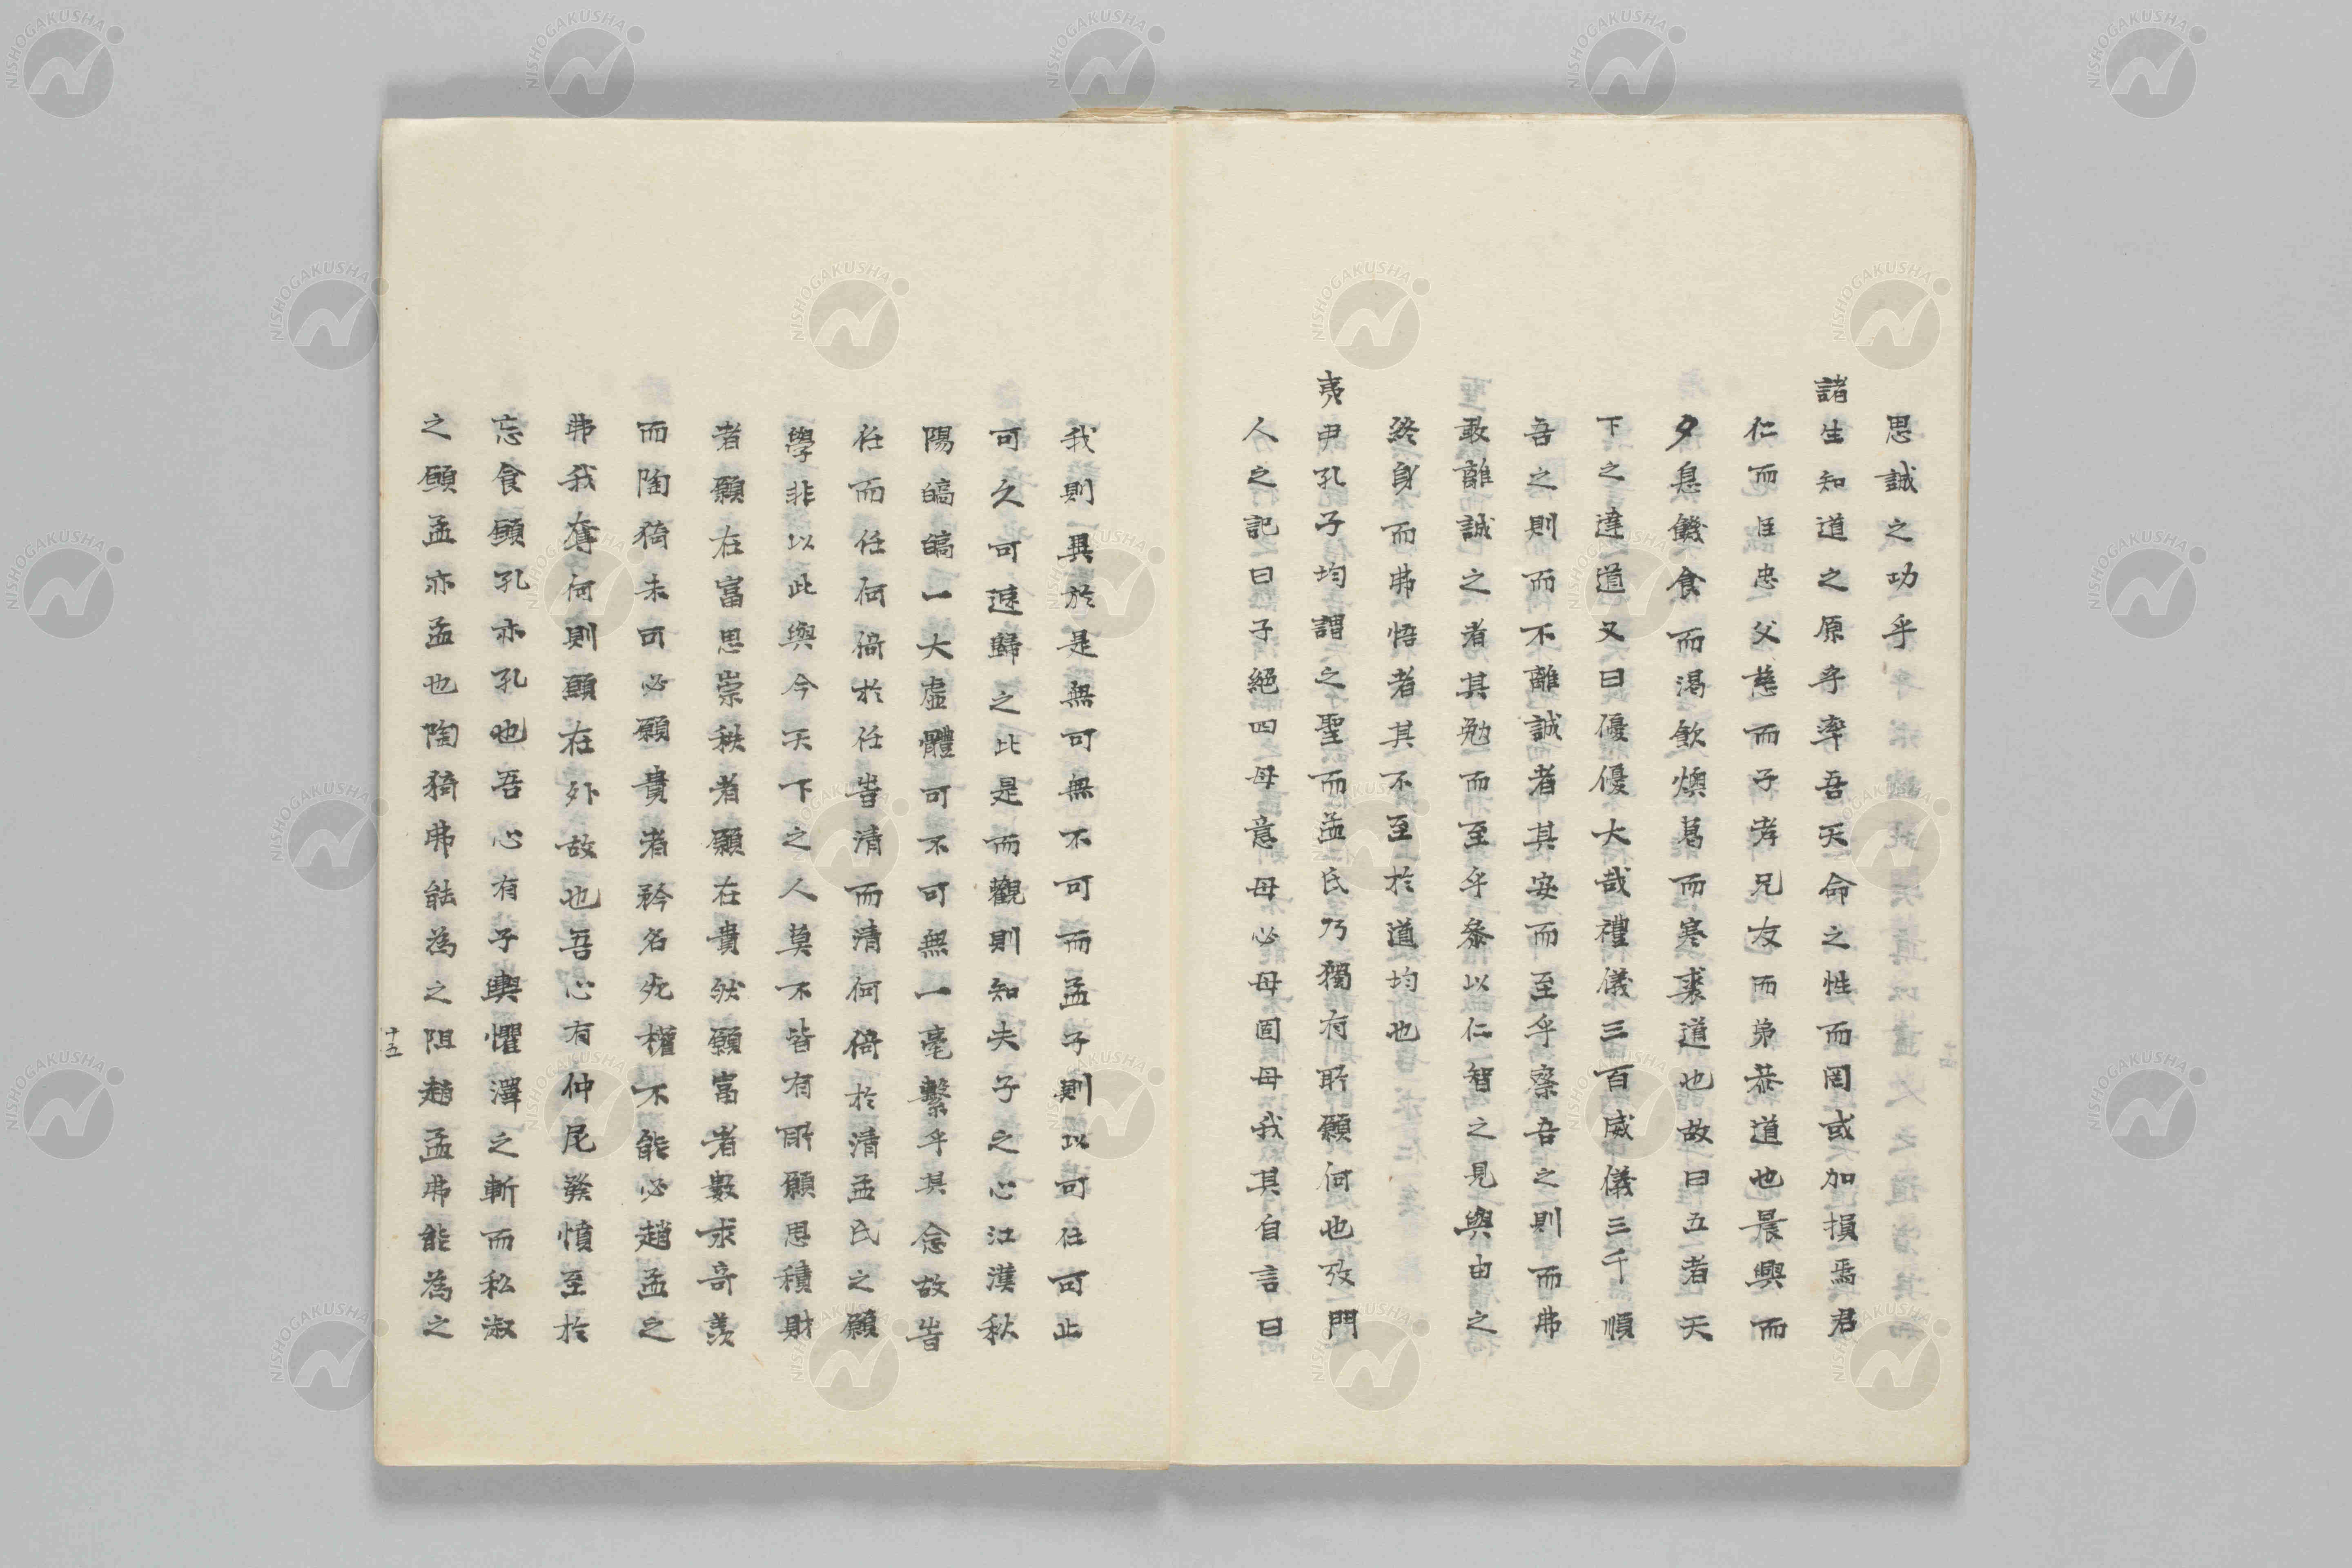 思誠之功乎
諸生知道之原乎率吾天命之性而罔或加損焉君
仁而臣忠父慈而子孝兄友而弟恭道也晨興而
夕息饑食而渴飲燠葛而寒裘道也故曰五者天
下之達道又曰優優大哉禮儀三百威儀三千順
吾之則而不離誠者其安而至乎察吾之則而弗
敢離誠之者其勉而至乎叅以仁智之見與由之
終身而弗悟者其不至於道均也
夷尹孔子均謂之聖而孟氏乃獨有所願何也攷門
人之記曰子絕四毋意毋必毋固毋我其自言曰
我則異於是無可無不可而孟子則以可仕可止
可久可速歸之比是而觀則知夫子之心江漢秋
陽皜皜一大虛體可不可無一毫繫乎其念故皆
任而任何倚於任皆清而清何倚於清孟氏之願
學非以此與今天下之人莫不皆有所願思積財
者願在富思崇秩者願在貴然願富者數求奇羨
而陶猗未可必願貴者矜名死權不能必趙孟之
弗我奪何則願在外故也吾心有仲尼發憤至於
忘食顧孔亦孔也吾心有子輿懼澤之斬而私淑
之願孟亦孟也陶猗弗能為之阻趙孟弗能為之
十五
NISHOGAKUSHA